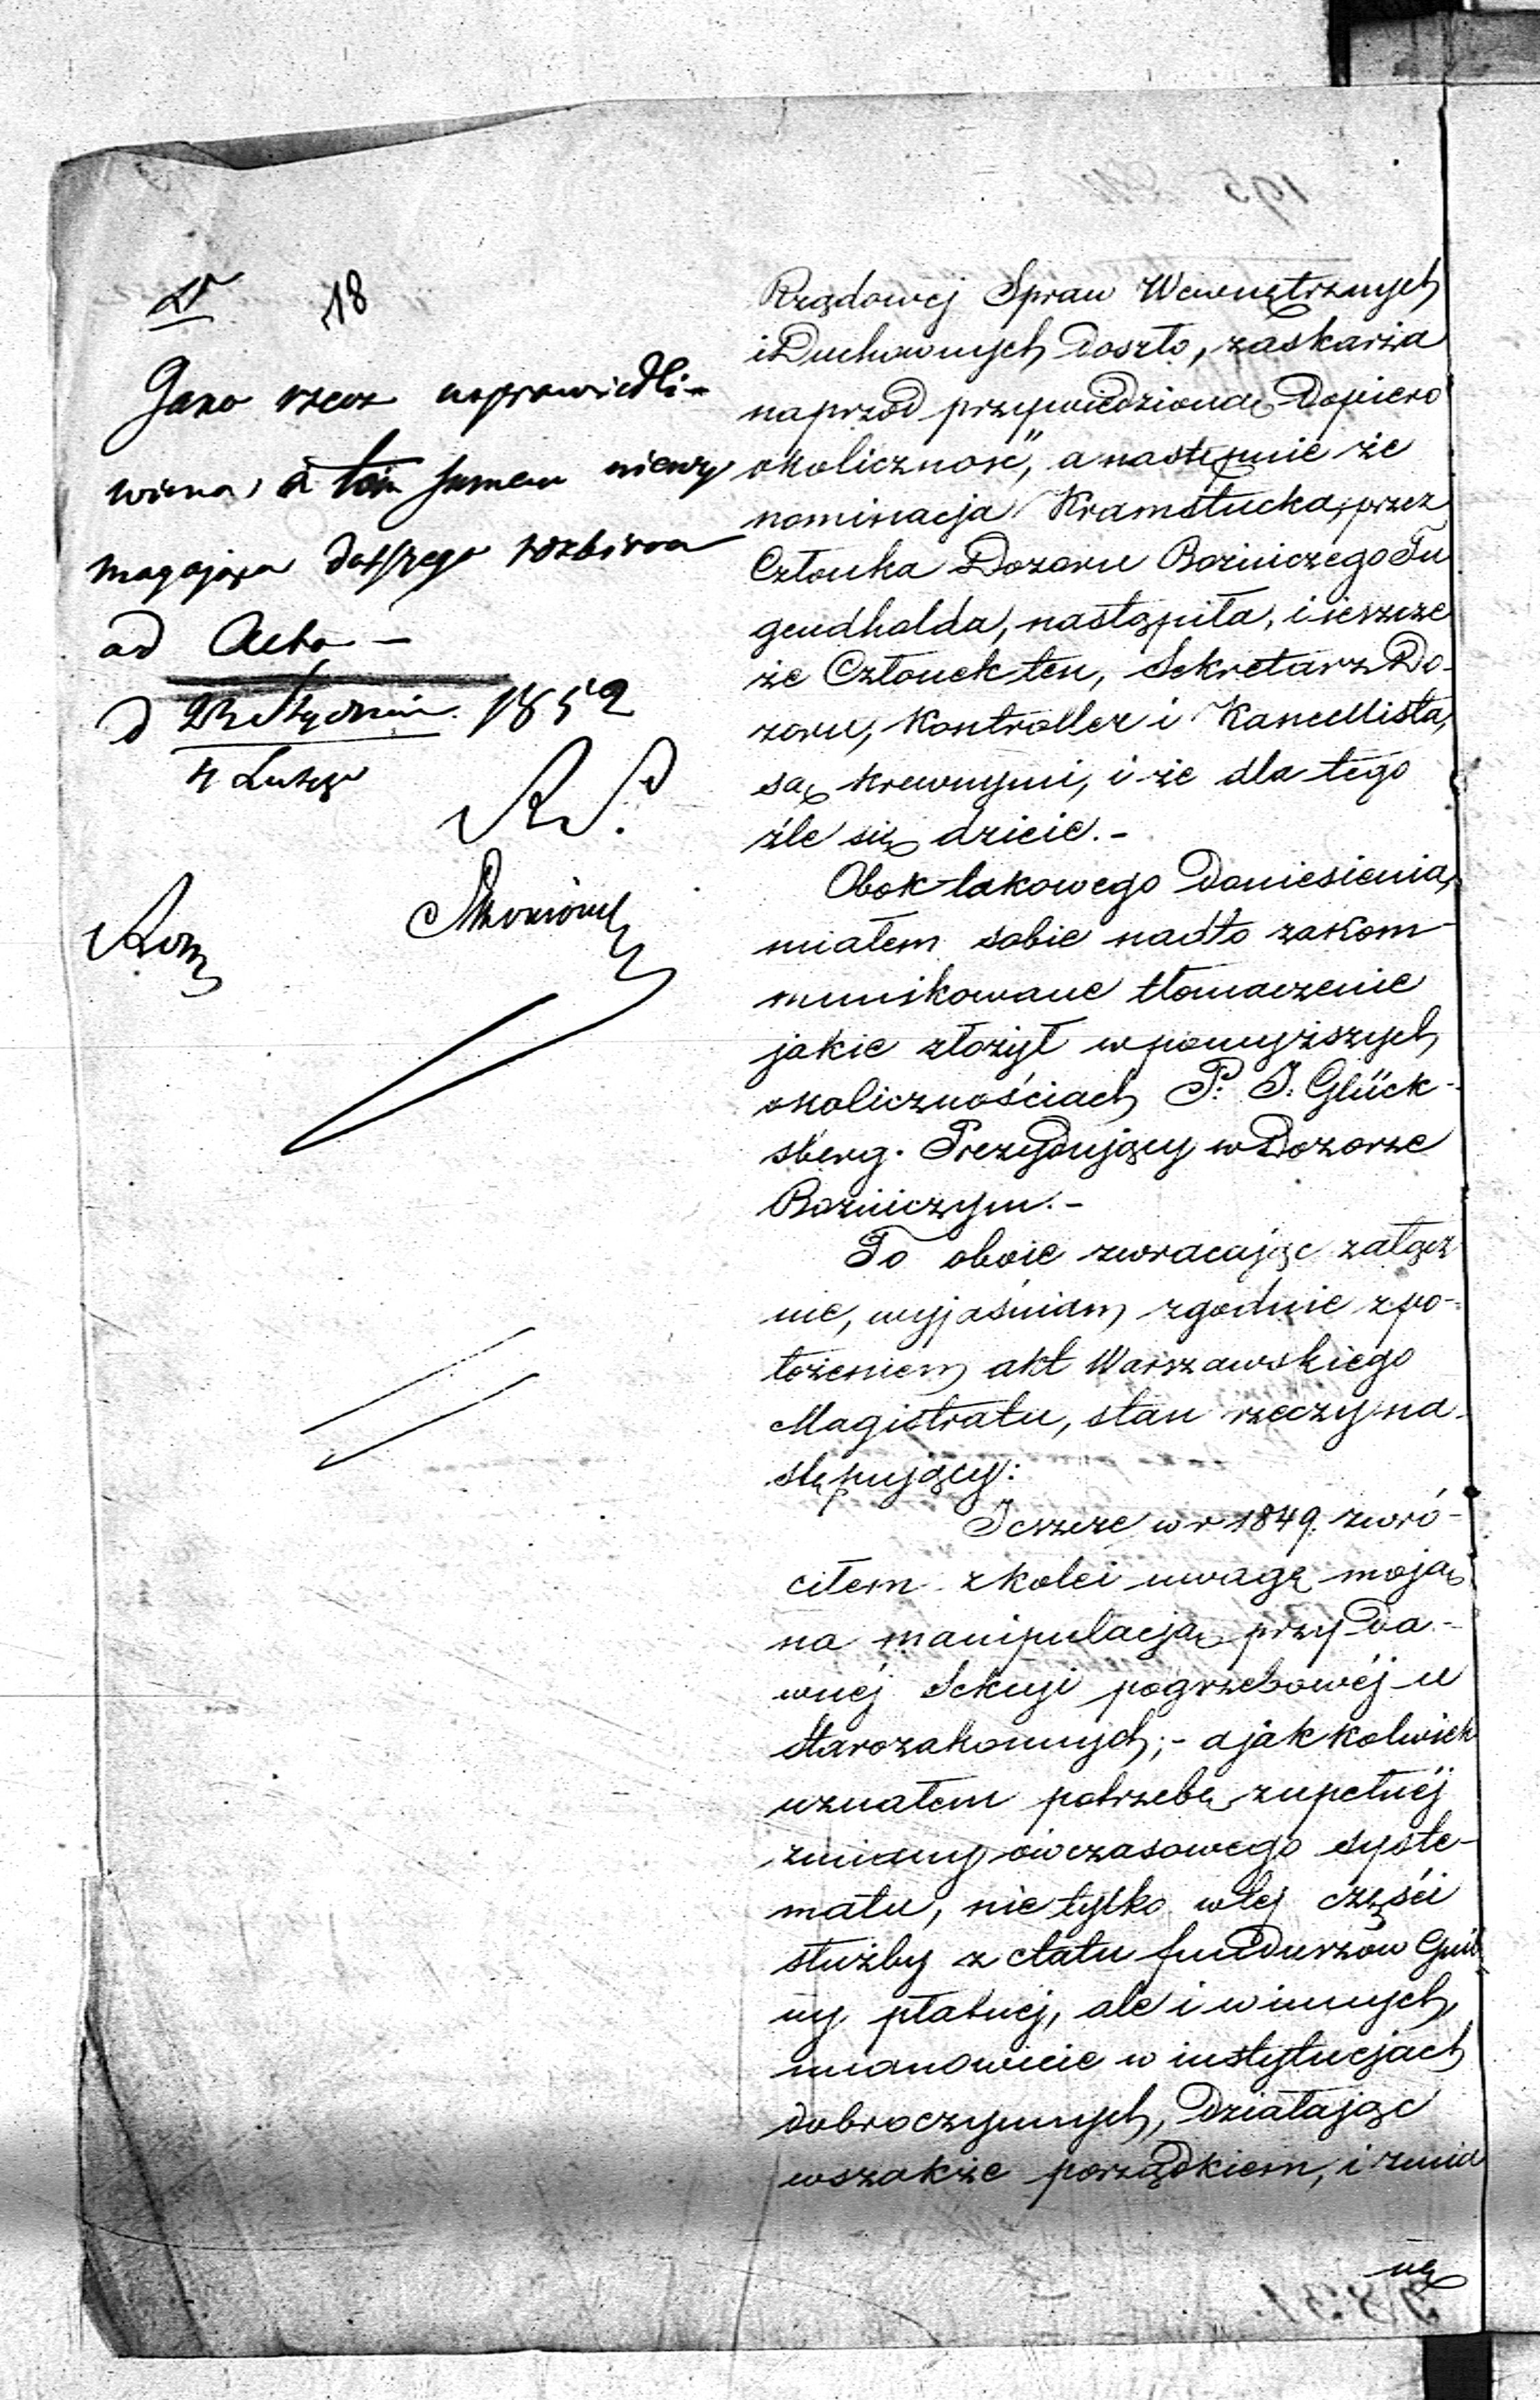 18
Jako rzecz usprawiedli-
wiona, a tém samem niewy
magająca dalszego rozbioru
ad Acta -
d 23 Stycznia 1852
4 Lutego
Rządowej Spraw Wewnętrznych
i Duchownych doszło, zaskarża
naprzód przywiedzioną dopiero
okoliczność," a następnie że
nominacja Kramsztucka, przez
Członka Dozoru Bożniczego Tu
gendholda, nastąpiła, i jeszcze
że Członek ten, Sekretarz Do-
zoru, Kontroller i Kancellista,
są krewnymi, i że dla tego
źle się dzieie. -
Obok takowego doniesienia,
miałem sobie nadto zakom-
munikowane tłomaczenie
jakie złożył w powyższych
okolicznościach P. J. Glück-
sberg. Prezydujący w Dozorze
Bożniczym. -
To oboie zwracając załącz
nie, wyjaśniam, zgodnie z po-
łożeniem akt Warszawskiego
Magistratu, stan rzeczy na-
stępujący:
Jeszcze w r 1849. zwró-
ciłem z kolei uwagę moją
na manipulacją przy da-
wnéj Sekcyi pogrzebowéj u
Starozakonnych; - a jakkolwiek
uznałem potrzebę zupełnéj
zmiany ówczasowego syste-
matu, nie tylko w tej części
służby z etatu funduszów Gmi
ny płatnej, ale i w innych,
mianowicie w instytucjach
dobroczynnych, działając
wszakże porządkiem, i zmia
ną